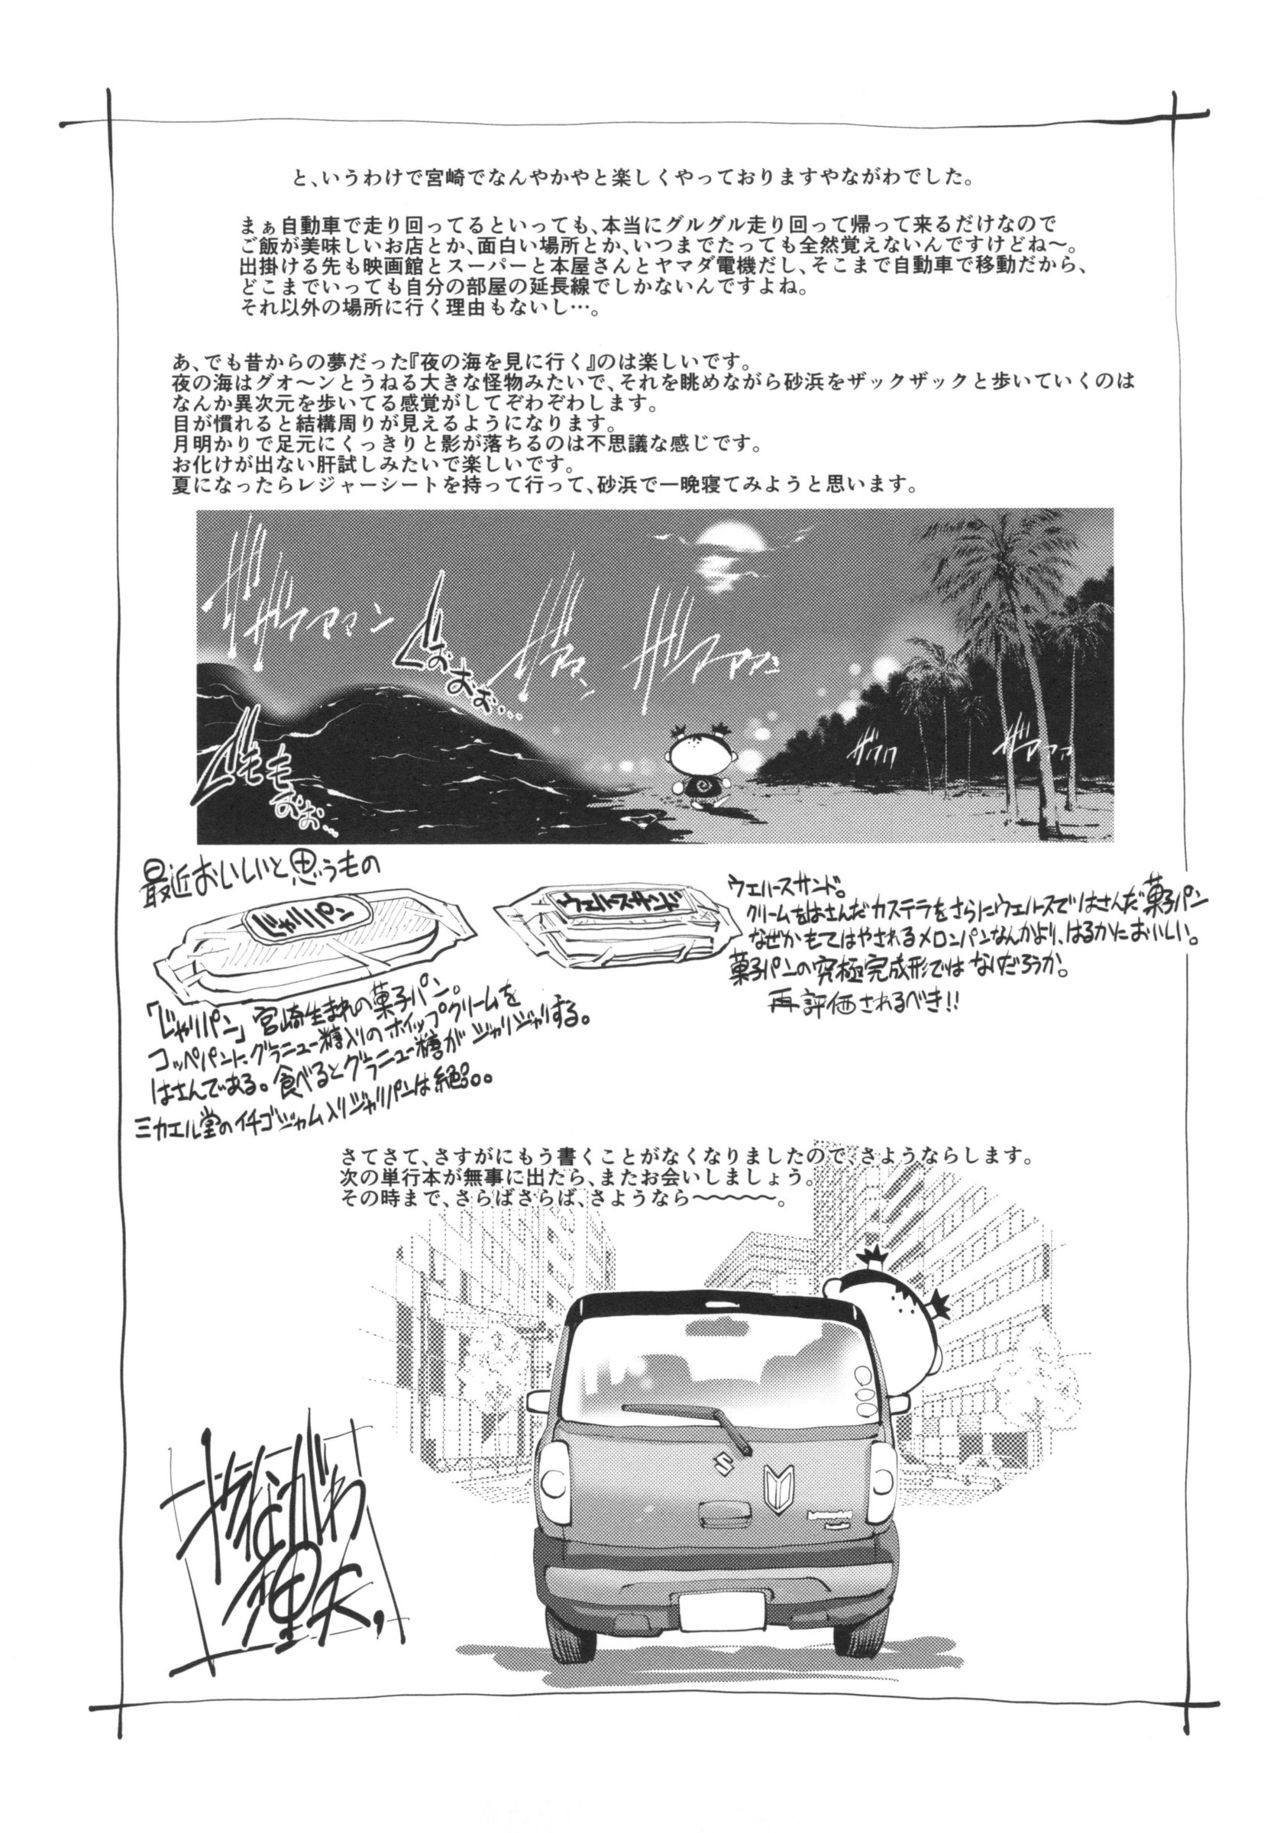 と、いうわけで宮崎でなんやかやと楽しくやっておりますやながわでした。
まぁ自動車で走り回ってるといっても、本当にグルグル走り回って帰って来るだけなので
ご飯が美味しいお店とか、面白い場所とか、いつまでたっても全然覚えないんですけどね〜。
出掛ける先も映画館とスーパーと本屋さんとヤマダ電機だし、そこまで自動車で移動だから、
どこまでいっても自分の部屋の延長線でしかないんですよね。
それ以外の場所に行く理由もないし…。
あ、でも昔からの夢だった『夜の海を見に行く』のは楽しいです。
夜の海はグオ〜ンとうねる大きな怪物みたいで、それを眺めながら砂浜をザックザックと歩いていくのは
なんか異次元を歩いてる感覚がしてぞわぞわします。
目が慣れると結構周りが見えるようになります。
月明かりで足元にくっきりと影が落ちるのは不思議な感じです。
お化けが出ない肝試しみたいで楽しいです。
夏になったらレジャーシートを持って行って、砂浜で一晩寝てみようと思います。
ぐおおおお…
最近おいしいと思うもの
じゃりパン
ウエハースサンド
「じゃりパン」宮崎生まれの菓子パン。
コッペパンにグラニュー糖入りのホイップクリームを
はさんである。食べるとグラニュー糖がジャリジャリする。
ミカエル堂のイチゴジャム入りジャリパンは絶品。
ウエハースサンド。
クリームをはさんだカステラをさらにウエハースではさんだ菓子パン
なぜかもてはやされるメロンパンなんかより、はるかにおいしい。
菓子パンの究極完成形ではないだろうか。
再評価されるべき!!
さてさて、さすがにもう書くことがなくなりましたので、さようならします。
次の単行本が無事に出たら、またお会いしましょう。
その時まで、さらばさらば、さようなら〜〜〜〜〜。
やながわ
理央